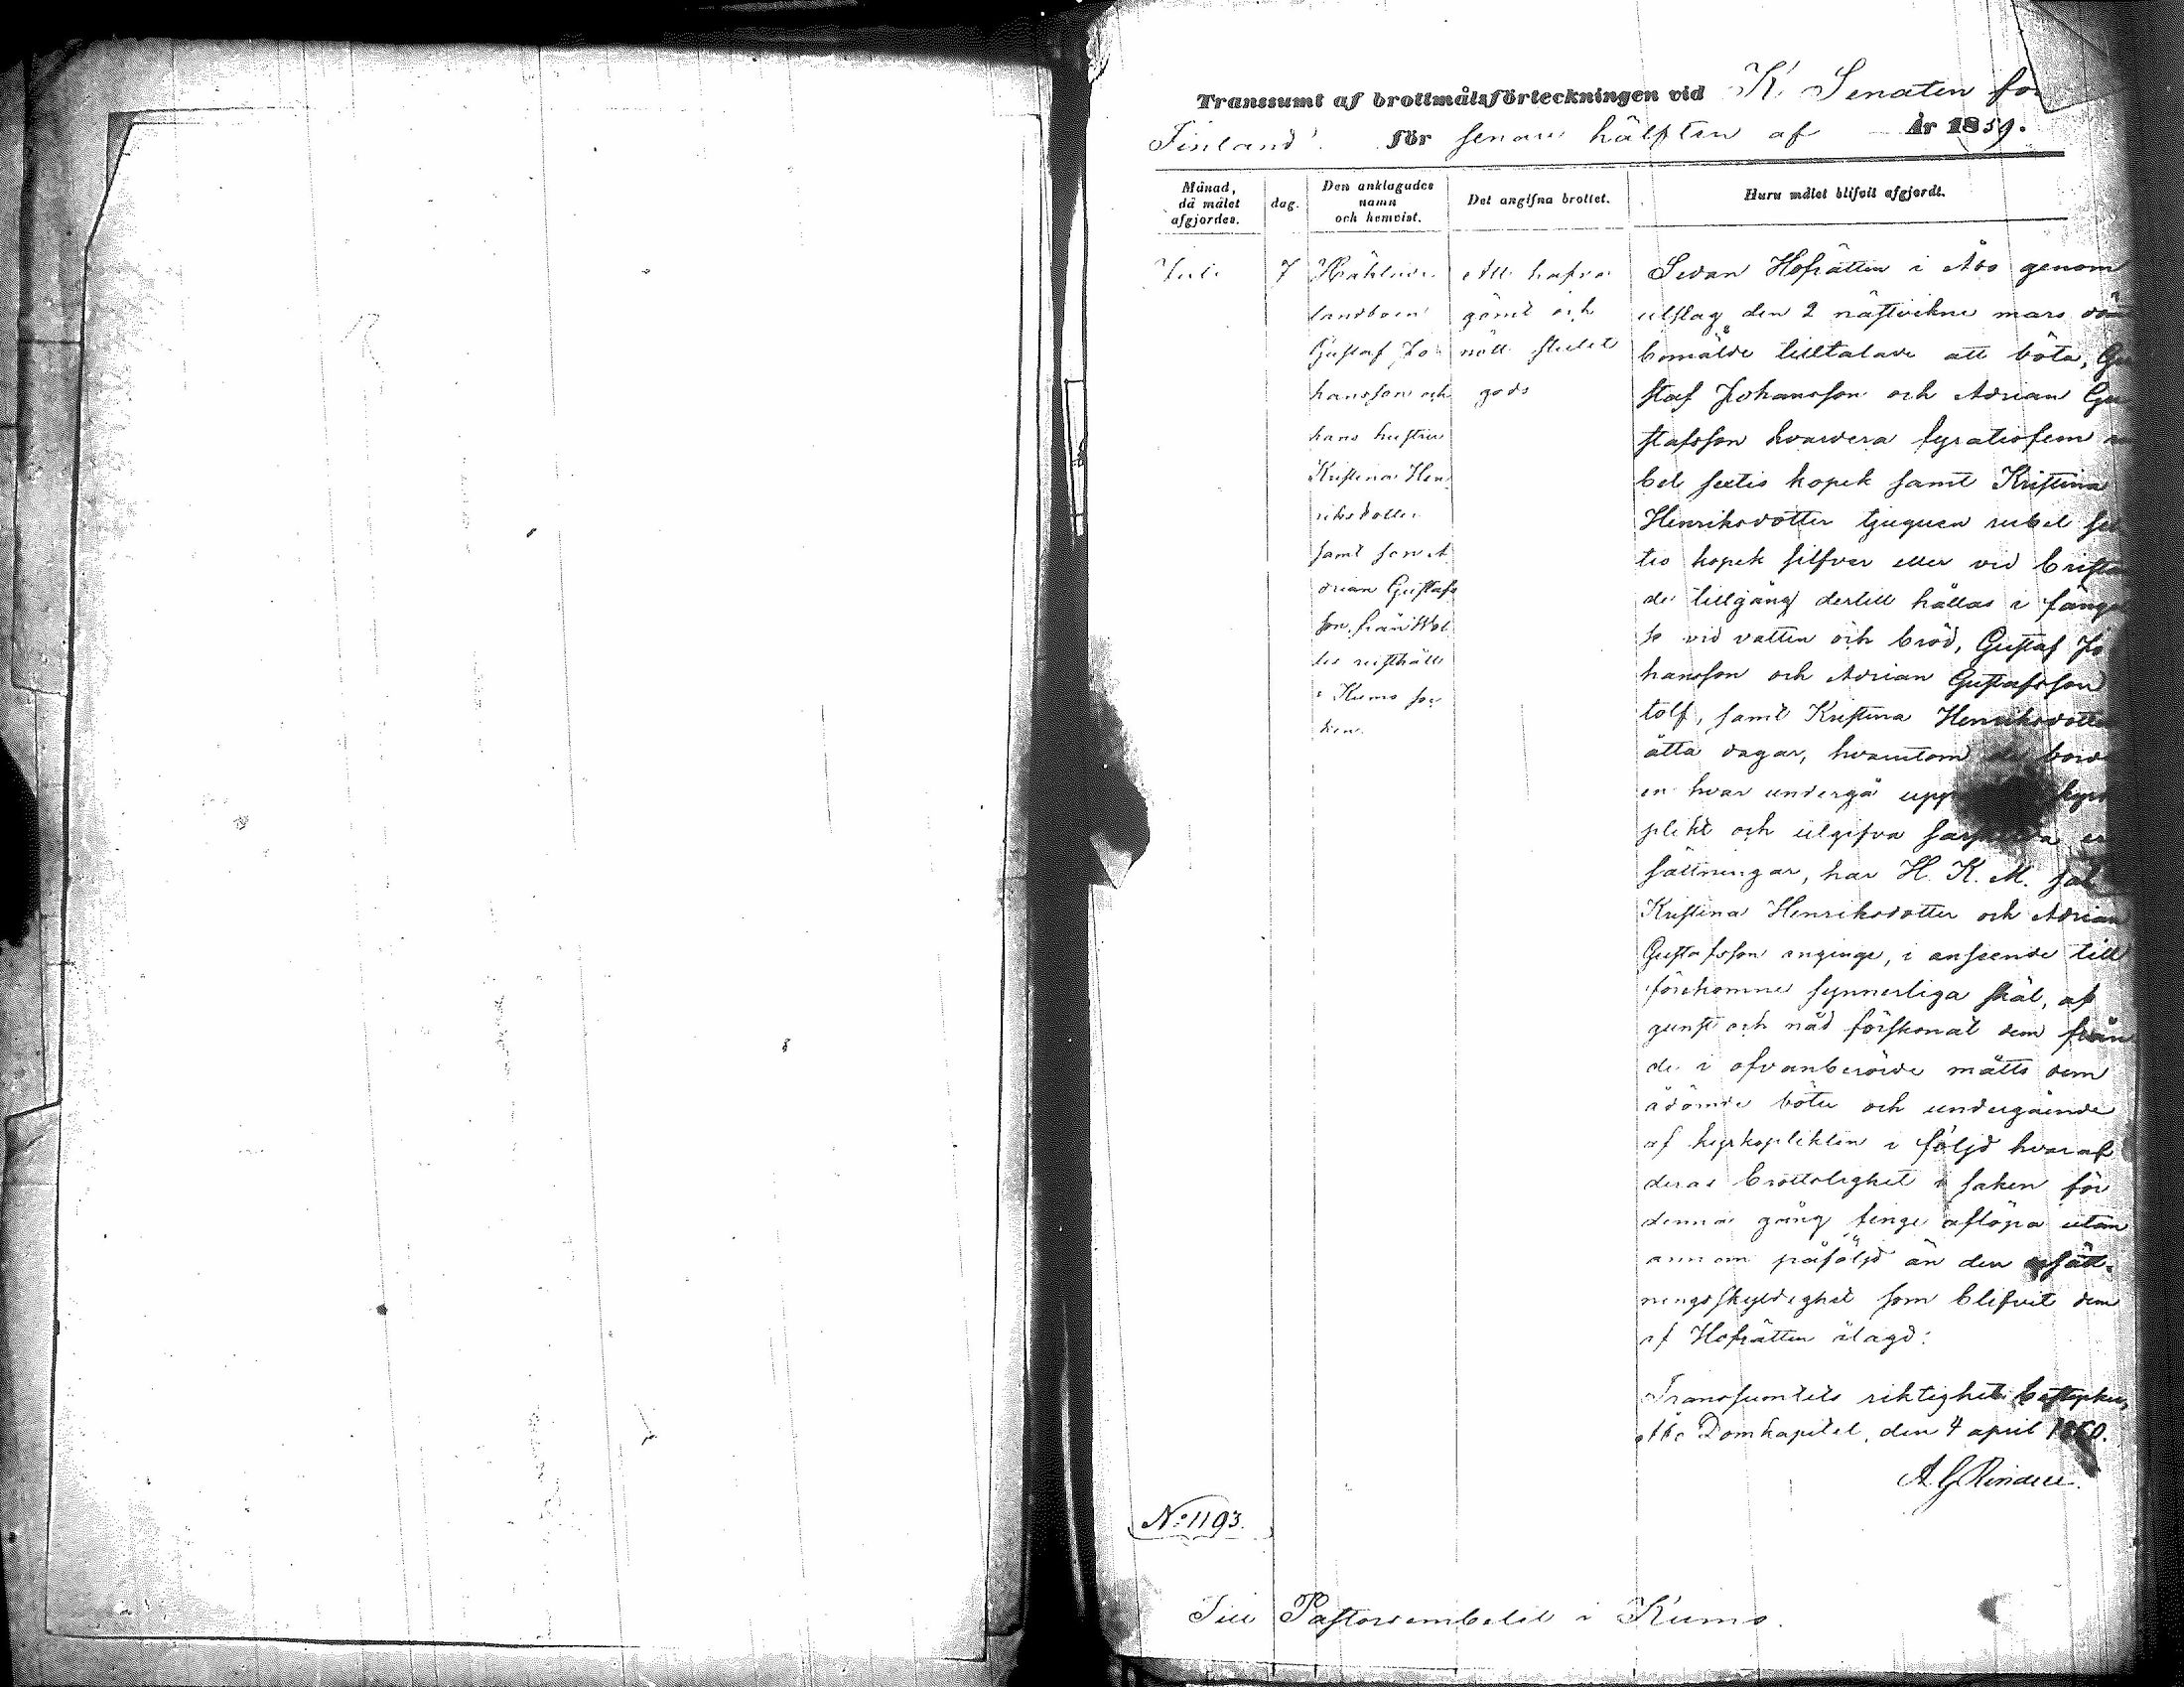 Transsumt af brottmålsförteckningen vid K. Senaten för
Finland för senare hälften af År 1859.
Månad, då målet afgjordes.
dag.
Den anklagades namn och hemvist.
Det angifna brottet.
Huru målet blifvit afgjordt.
Juli
7
landboen
Gustaf Jo
hansson och
hans hustru
Kristina Hen
riksdotter
samt son A
drian Gustafs
son, från
lis rusthåll
i Kumo soc
ken.
Att hafva
gömt och
nött stulet
gods
Sedan Hofrätten i Åbo genom
utslag den 2 nästvikne mars döm
bemälde tilltalade att böta, Gu
staf Johansson och Adrian Gu
stafsson hvardera fyratiofem ru
bel sextio kopek samt Kristina
Henriksdotter tjuguen rubel sex
tio kopek silfver eller vid bristan
de tillgång dertill hållas i fängel
se vid vatten och bröd, Gustaf Jo
hansson och Adrian Gustafsson
tolf, samt Kristina Henriksdotter
åtta dagar, hvarutom de borde
en hvar undergå kyrko
plikt och utgifva er
sättningar, har H. K. M.
Kristina Henriksdotter och Adrian
Gustafsson anginge, i anseende till
förekomne synnerliga skäl, af
gunst och nåd förskonat dem från
de i ofvanberörde måtto dem
ådömde böter och undergående
af kyrkoplikten i följd hvaraf
deras brottslighet i saken för
denna gång finge aflöpa utan
annan påföljd än den ersätt-
ningsskyldighet som blifvit dem
af Hofrätten ålagd.
Transsumtets riktighet bestyrker,
Åbo Domkapitel, den 4 april 1860.
N:o 1193.
Till Pastorsembetet i Kumo.